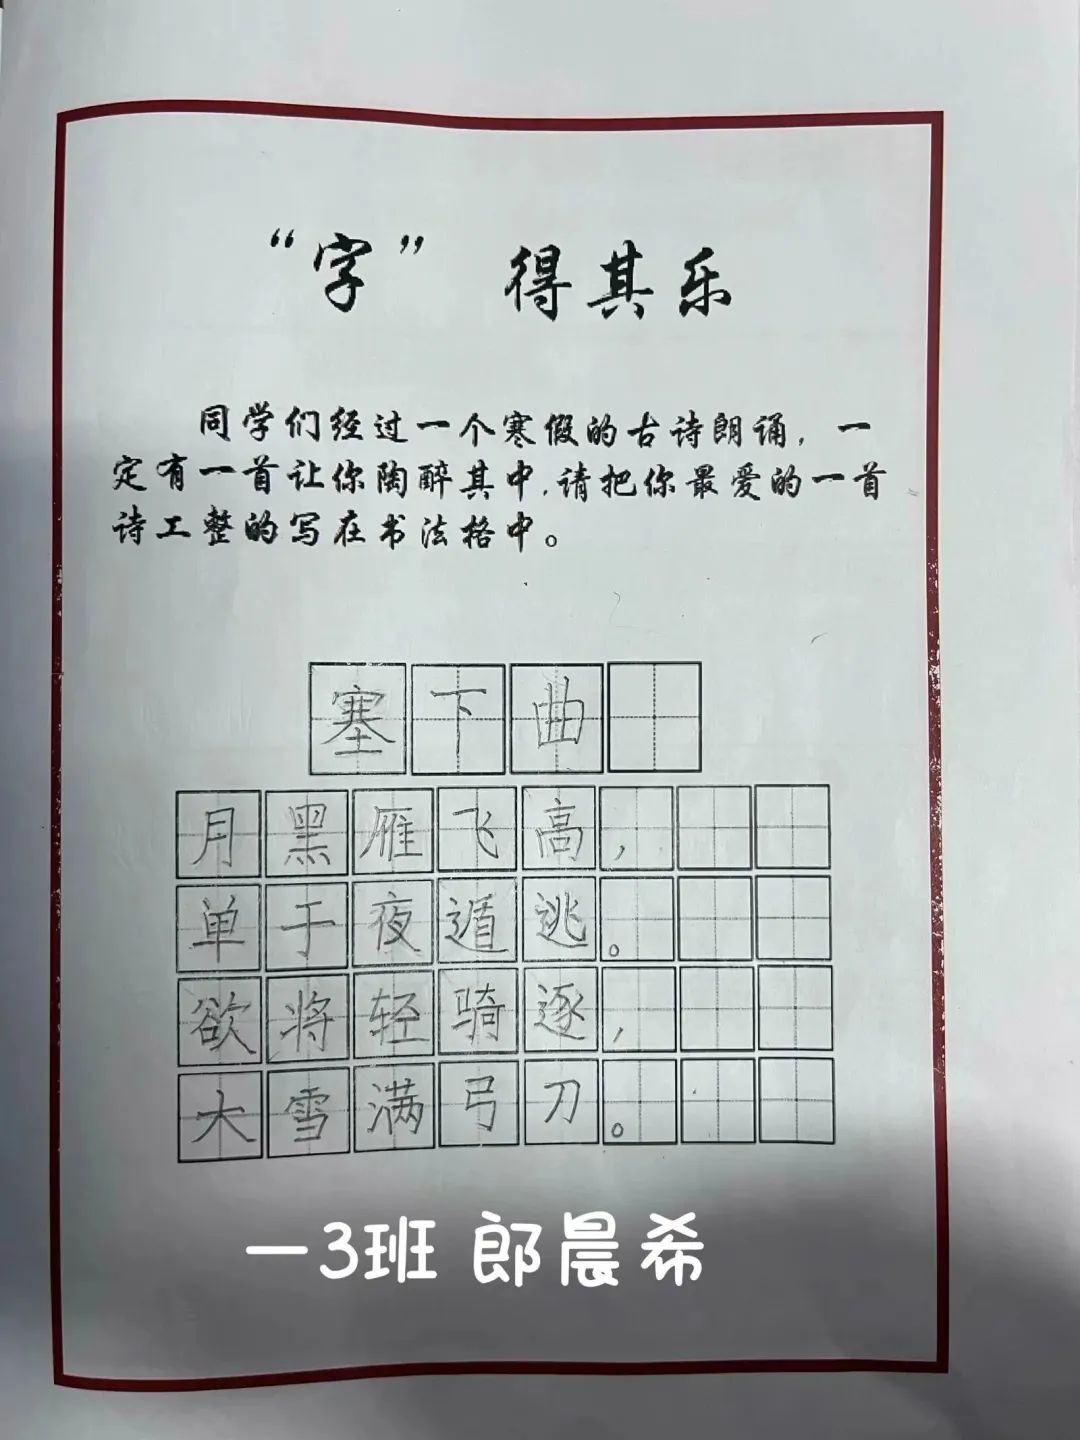 “字” 得其乐
同学们经过一个寒假的古诗朗诵，一
定有一首让你陶醉其中，请把你最爱的一首
诗工整的写在书法格中。
塞下曲
月黑雁飞高，
单于夜遁逃。
欲将轻骑逐，
大雪满弓刀。
一3班 郎晨希